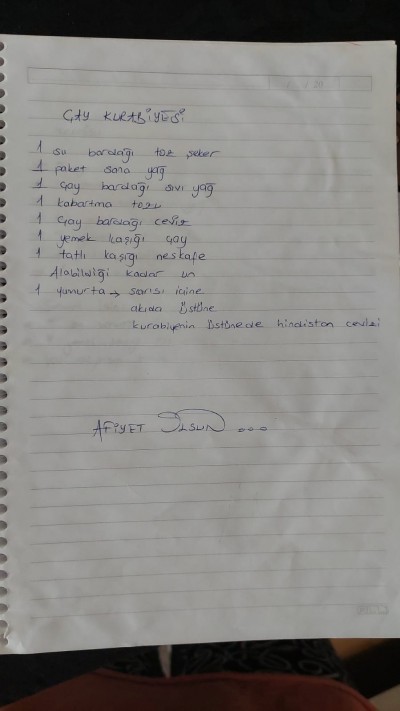 ÇAY KURABİYESİ
1 su bardağı toz şeker
1 paket sana yağ
1 çay bardağı sıvı yağ
1 kabartma tozu
1 çay bardağı ceviz
1 yemek kaşığı çay
1 tatlı kaşığı neskafe
Alabildiği kadar un
1 yumurta → sarısı içine
akıda üstüne
kurabiyenin üstünede hindistan cevizi
AFİYET OLSUN ...